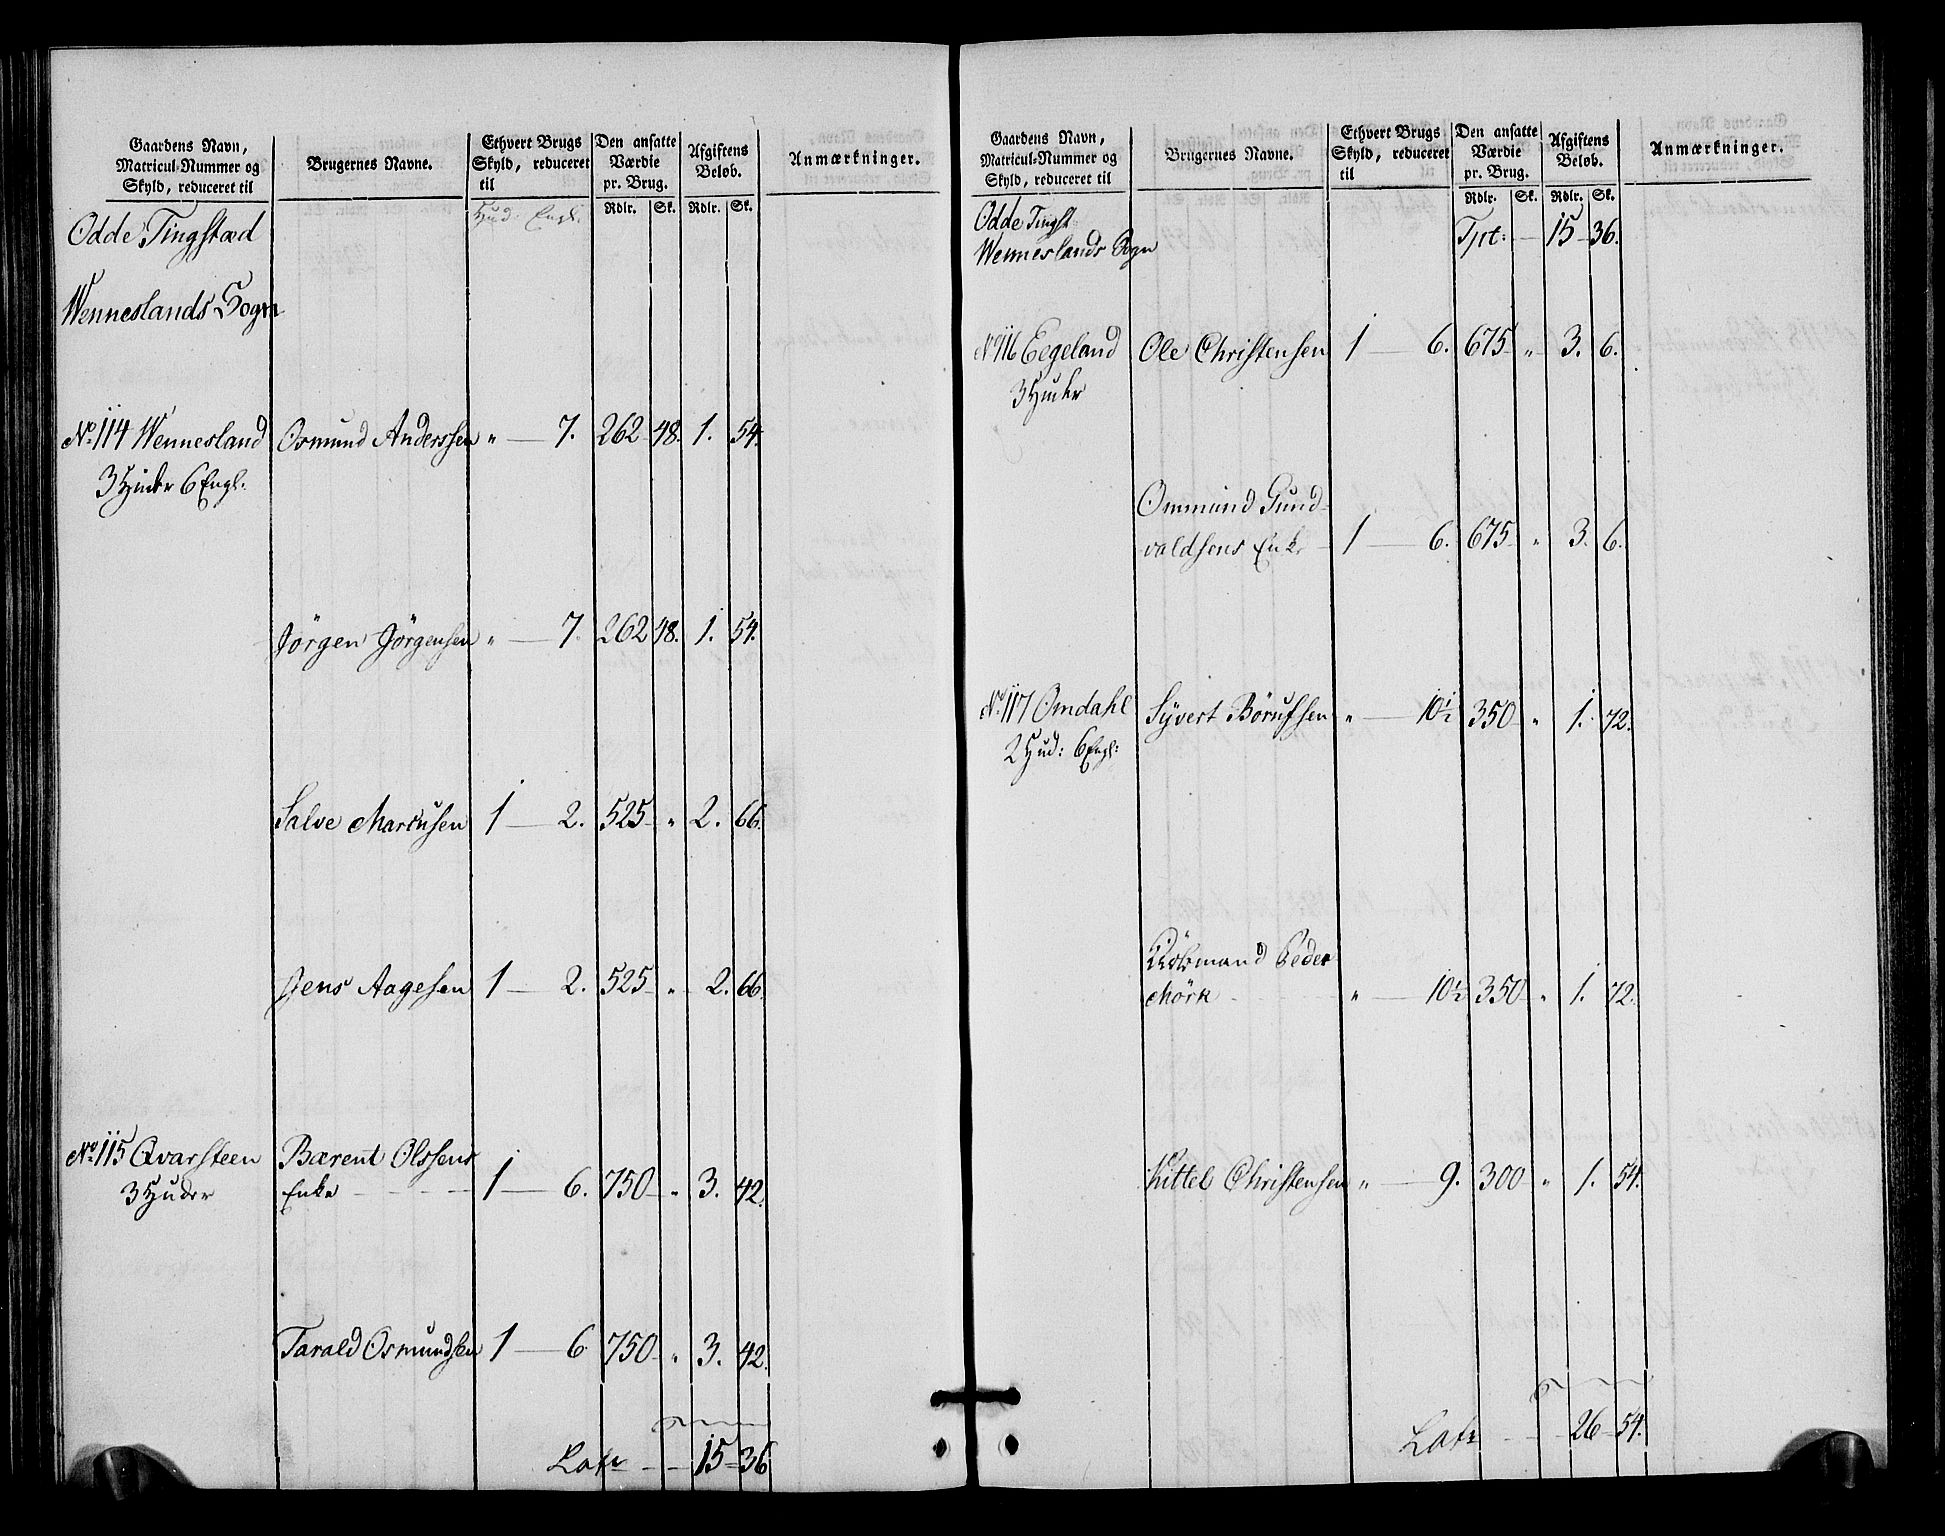 Gaardens Navn, Matricul-Nummer og Skyld, reduceret til | Brugernes Navne. | Ethvert Brugs Skyld, reduceret til | Den ansatte Værdie pr. Brug. | Afgiftens Beløb. | Anmærkninger.
Hud. Engl. | Rdlr. | Sk. | Rdlr. | Sk.
Odde Tingstæd
Wenneslands Sogn
No. 114 Wennesland | Osmund Anderssen | " — 7. | 262 | 48. | 1. | 54.
3 Huder 6 Engl.
Jörgen Jörgensen | " — 7. | 262 | 48. | 1. | 54.
Salve Marcusen | 1 — 2. | 525 | " | 2. | 66.
Jens Aagesen | 1 — 2. | 525 | " | 2. | 66.
No. 115 Qvarsteen | Bærent Olssens
3 Huder | Enke | 1 — 6. | 750 | " | 3. | 42.
Tarald Osmundsen | 1 — 6 | 750 | " | 3. | 42.
Late | 15 | 36
Gaardens Navn, Matricul-Nummer og Skyld, reduceret til | Brugernes Navne. | Ethvert Brugs Skyld, reduceret til | Den ansatte Værdie pr. Brug. | Afgiftens Beløb. | Anmærkninger.
Rdlr. | Sk. | Rdlr. | Sk.
Odde Tingst.
Tpt: | 15 | 36.
Wenneslands Sogn
No. 116 Eegeland | Ole Christensen | 1 — 6. | 675 | " | 3. | 6.
3 Huder
Ommund Gund-
valdsens Enke | 1 — 6. | 675 | " | 3. | 6.
No. 117 Omdahl | Syvert Börufsen | " — 10½ | 350 | " | 1. | 72.
2 Hud: 6 Engl:
Kiöbmand Peder
Mörk | " — 10½ | 350 | " | 1. | 72.
Kittel Christensen | " — 9. | 300 | " | 1. | 54.
Late | 26 | 54.